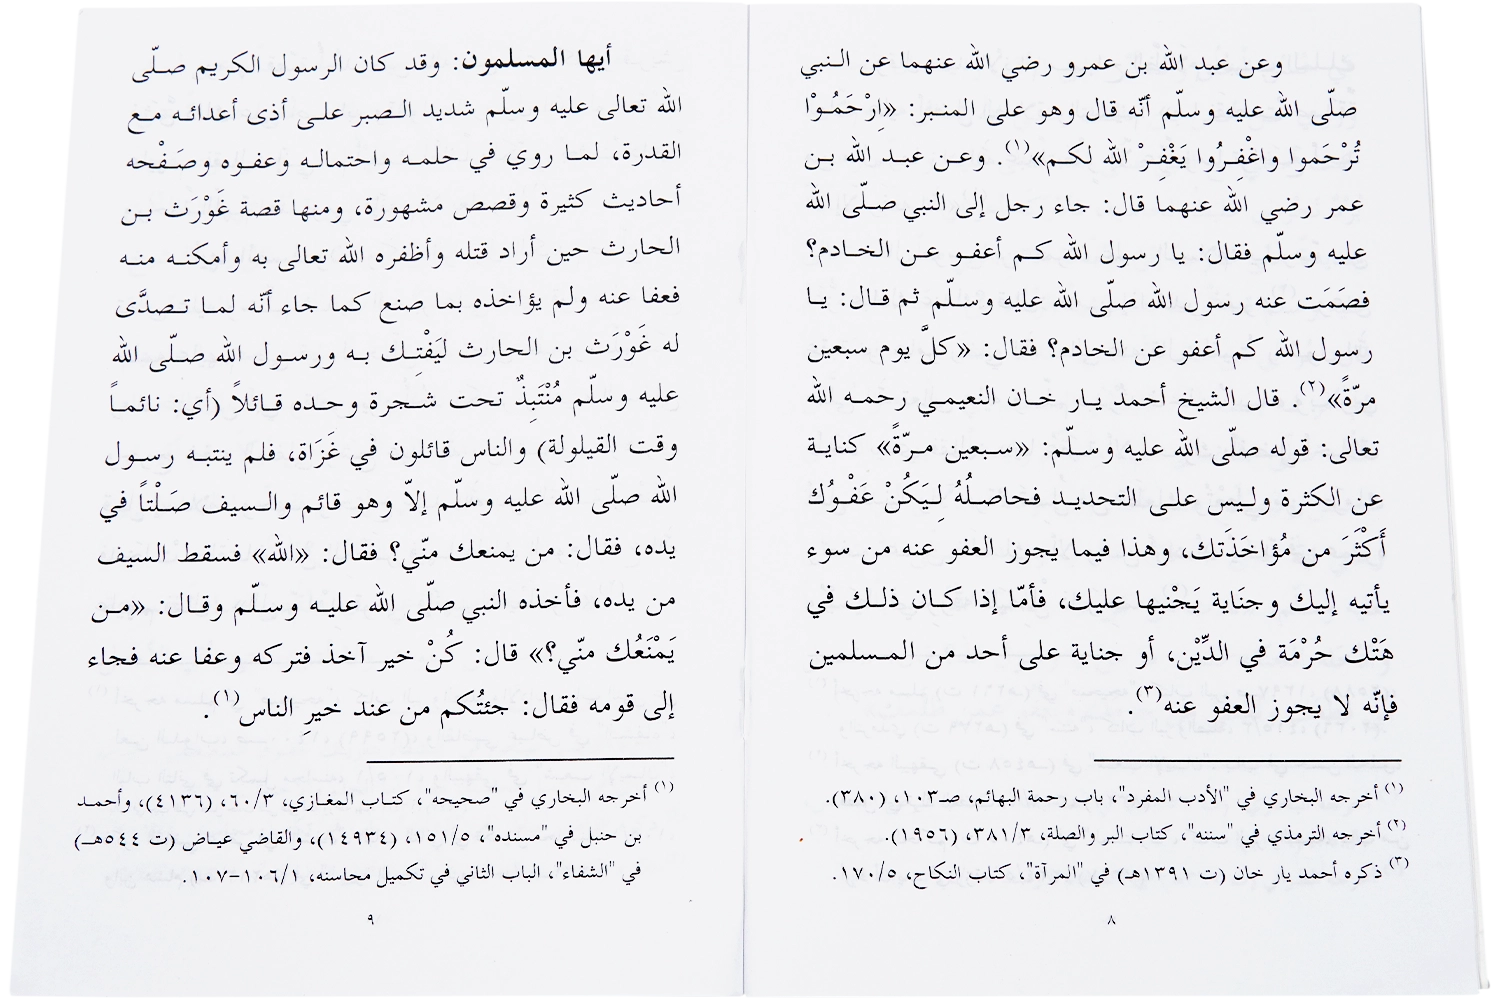 وعن عبد الله بن عمرو رضي الله عنهما عن النبي
صلّى الله عليه وسلّم أنّه قال وهو على المنبر: «اِرْحَمُوْا
تُرْحَموا واغْفِرُوا يَغْفِرْ الله لكم»(١). وعن عبد الله بن
عمر رضي الله عنهما قال: جاء رجل إلى النبي صلّى الله
عليه وسلّم فقال: يا رسول الله كم أعفو عن الخادم؟
فصَمَت عنه رسول الله صلّى الله عليه وسلّم ثم قال: يا
رسول الله كم أعفو عن الخادم؟ فقال: «كلَّ يوم سبعين
مرّةً»(٢). قال الشيخ أحمد يار خان النعيمي رحمه الله
تعالى: قوله صلّى الله عليه وسلّم: «سبعين مرّةً» كناية
عن الكثرة وليس على التحديد فحاصلُهُ لِيَكُنْ عَفْوُك
أَكْثَرَ من مُؤاخَذَتك، وهذا فيما يجوز العفو عنه من سوء
يأتيه إليك وجنَاية يَجْنيها عليك، فأمّا إذا كان ذلك في
هَتْك حُرْمَة في الدِّيْن، أو جناية على أحد من المسلمين
فإنّه لا يجوز العفو عنه(٣).
(١) أخرجه البخاري في "الأدب المفرد"، باب رحمة البهائم، صـ١٠٣، (٣٨٠).
(٢) أخرجه الترمذي في "سننه"، كتاب البر والصلة، ٣٨١/٣، (١٩٥٦).
(٣) ذكره أحمد يار خان (ت ١٣٩١هـ) في "المرآة"، كتاب النكاح، ١٧٠/٥.
٨
أيها المسلمون: وقد كان الرسول الكريم صلّى
الله تعالى عليه وسلّم شديد الصبر على أذى أعدائه مع
القدرة، لما روي في حلمه واحتماله وعفوه وصَفْحه
أحاديث كثيرة وقصص مشهورة، ومنها قصة غَوْرَث بن
الحارث حين أراد قتله وأظفره الله تعالى به وأمكنه منه
فعفا عنه ولم يؤاخذه بما صنع كما جاء أنّه لما تصدَّى
له غَوْرَث بن الحارث ليَفْتِك به ورسول الله صلّى الله
عليه وسلّم مُنْتَبِذٌ تحت شجرة وحده قائلاً (أي: نائماً
وقت القيلولة) والناس قائلون في غَزَاة، فلم ينتبه رسول
الله صلّى الله عليه وسلّم إلاّ وهو قائم والسيف صَلْتاً في
يده، فقال: من يمنعك منّي؟ فقال: «الله» فسقط السيف
من يده، فأخذه النبي صلّى الله عليه وسلّم وقال: «من
يَمْنَعُك منّي؟» قال: كُنْ خير آخذ فتركه وعفا عنه فجاء
إلى قومه فقال: جئتُكم من عند خيرِ الناس(١).
(١) أخرجه البخاري في "صحيحه"، كتاب المغازي، ٦٠/٣، (٤١٣٦)، وأحمد
بن حنبل في "مسنده"، ١٥١/٥، (١٤٩٣٤)، والقاضي عياض (ت ٥٤٤هـ)
في "الشفاء"، الباب الثاني في تكميل محاسنه، ١٠٦/١-١٠٧.
٩